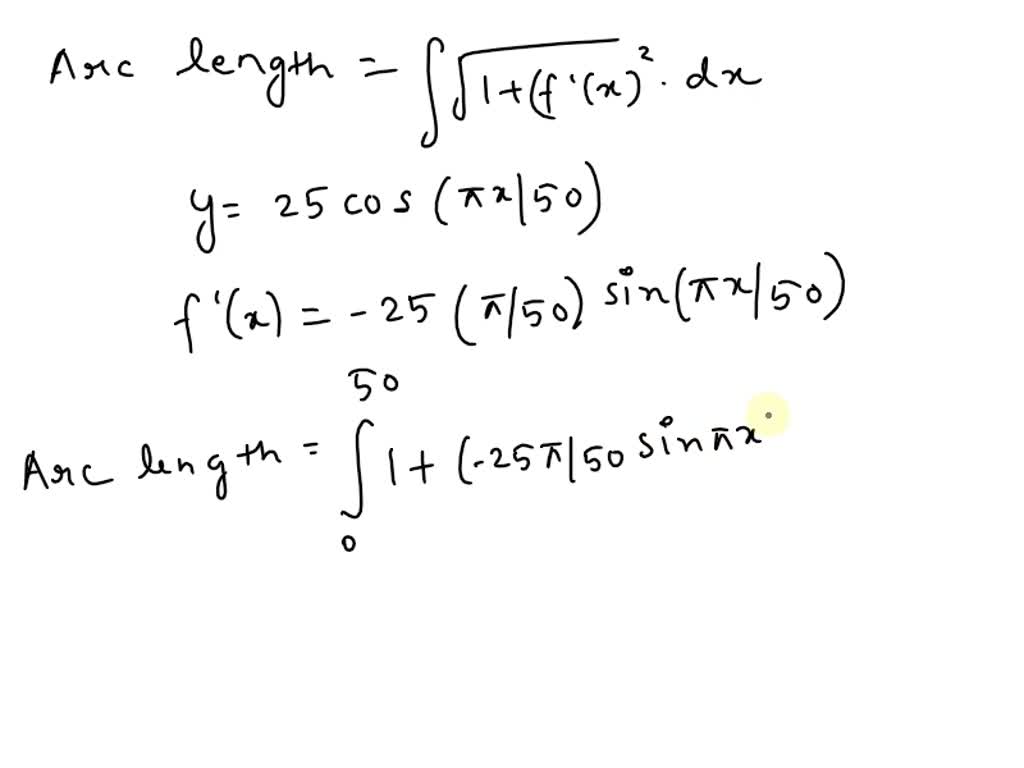 Arc length = ∫√1+(f'(x)². dx
y= 25 cos (πx|50)
f'(x) = -25 (π/50) sin(πx/50)
50
Arc length = ∫ 1+ (-25π|50 sinπx
0